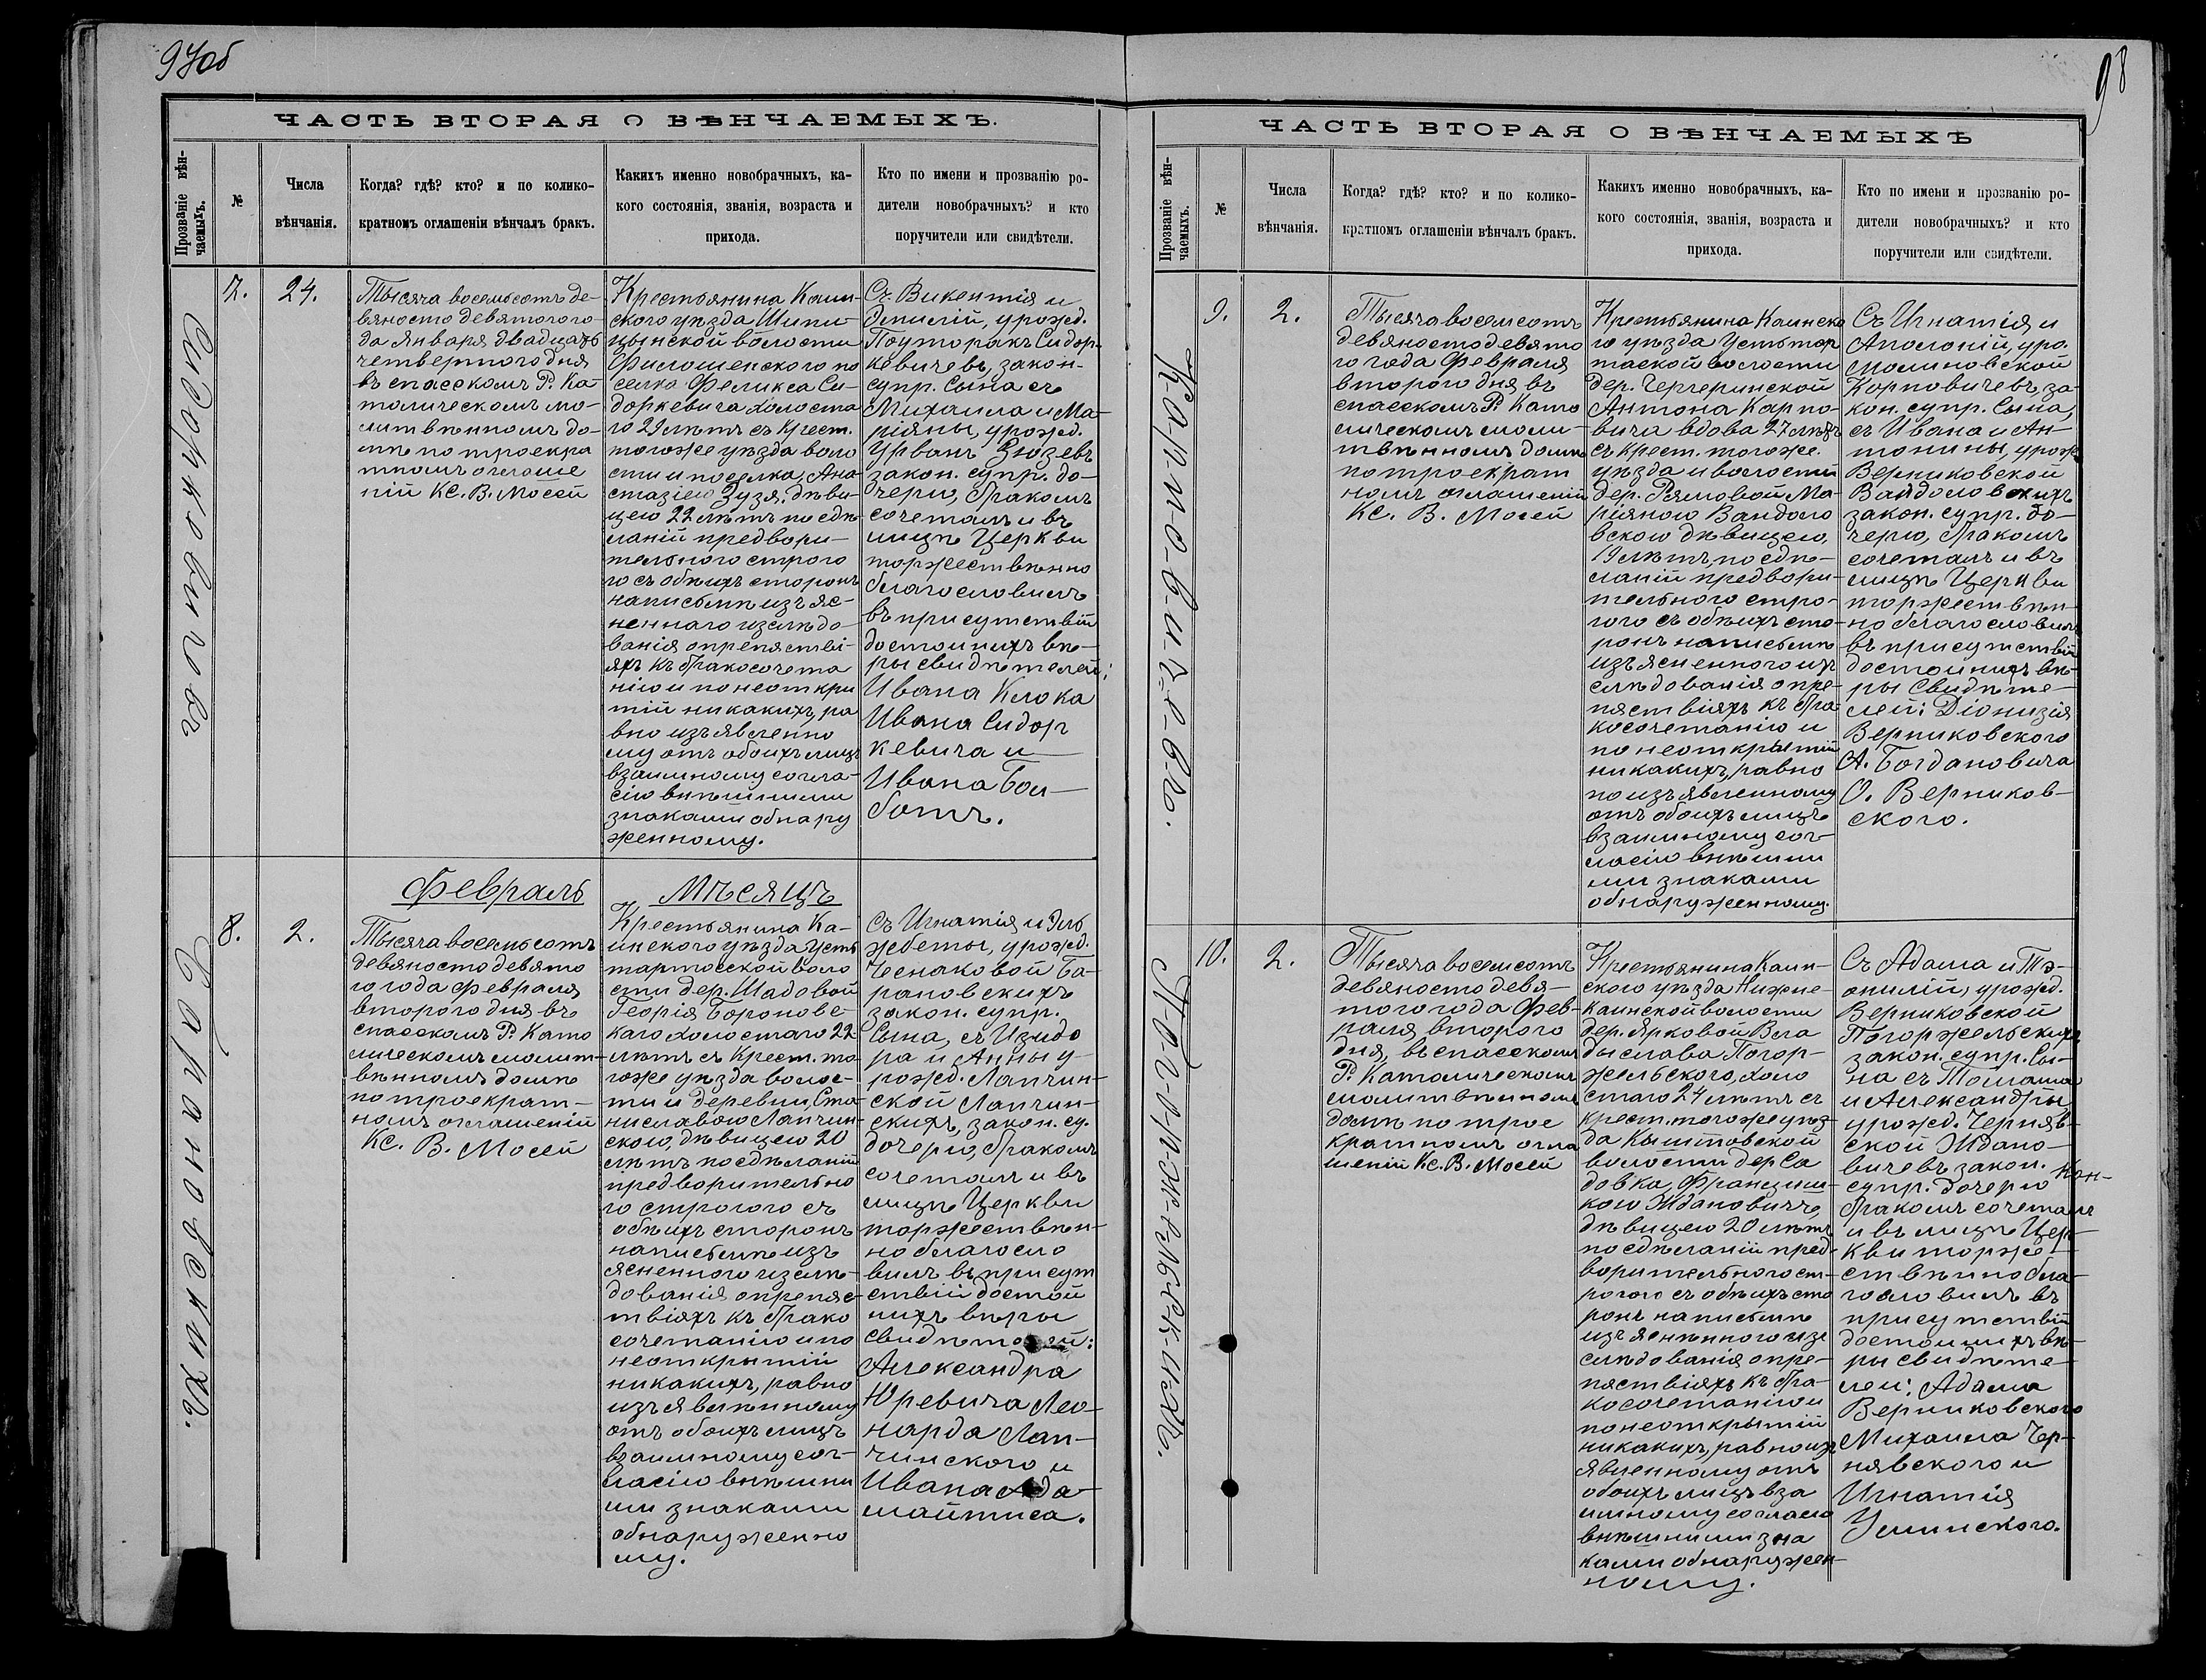 97об
ЧАСТЬ ВТОРАЯ О ВѢНЧАЕМЫХЪ.
Прозваніе вѣн-
чаемыхъ.
№
Числа
вѣнчанія.
Когда? гдѣ? кто? и по колико-
кратномъ оглашеніи вѣнчалъ бракъ.
Какихъ именно новобрачныхъ, ка-
кого состоянія, званія, возраста и
прихода.
Кто по имени и прозванію ро-
дители новобрачныхъ? и кто
поручители или свидѣтели.
Сидоркевичовъ
7.
24.
Тысяча восемьсотъ де-
вяносто девятого го-
да Января двадцать
четвертого дня
въ спасскомъ Р. Ка-
толическомъ мо-
литвѣнномъ до-
мѣ по троекра
тномъ оглаше
ній Кс. В. Мосей
Крестьянина Каин-
ского уѣзда Шипи-
цынской волости
Филошенского по
селка Феликса Си-
доркевича холоста
го 29 лѣтъ съ крест.
тогоже уѣзда воло
сти и поселка, Ана-
стазіею Зузя, дѣви-
цею 22 лѣтъ по сдѣ-
ланій предвори-
тельного строго
го съ обѣихъ сторонъ
написьмѣ изъяс-
неннаго изслѣдо-
ванія о препястві-
яхъ къ бракосочета
нію и по неоткры
тій никакихъ, ра
вно изъявленно
му отъ обоихъ лицъ
взаимному согла-
сію внѣшними
знаками обнару
женному.
Съ Викентія и
Эмилій, урожд.
Поуторакъ Сидор-
кевичевъ, закон-
супр. Сына съ
Михаила и Ма-
ріяны, урожд.
Урванъ Зюзевъ
закон. супр. до-
черью, бракомъ
сочеталъ и въ
лицѣ Церкви
торжествѣнно
благословилъ
въ присутствій
достоинихъ вѣ-
ры свидѣтелей:
Ивана Клока
Ивана Сидор
кевича и
Ивана Бол-
ботъ.
Февраль Мѣсяцъ
Барановскихъ.
8.
2.
Тысяча восемьсотъ
девяносто девято
го года Февраля
второго дня въ
спасскомъ Р. Като
лическомъ молит-
вѣнномъ домѣ
по троекрат-
номъ оглашеній
Кс. В. Мосей
Крестьянина Ка-
инского уѣзда Усть
тартасской воло
сти дер. Шадовой
Георія Боронове
каго холостаго 22
лѣтъ съ крест. то
гоже уѣзда волос-
ти и деревни, Ста-
ниславою Лапчин-
скою, дѣвицею 20
лѣтъ по сдѣланій
предворительно
го строгого съ
обѣихъ сторонъ
написьмѣ изъ
ясненного изслѣ-
дованія о препяс-
твіяхъ къ брако
сочетанію и по
неоткрытій
никакихъ, равно
изъявлѣнному
отъ обоихъ лицъ
взаимному сог-
ласію внѣшни
ми знаками
обнаруженно
му.
Съ Игнатія и Эль
жбеты, урожд.
Чеснаковой Ба-
рановскихъ
закон. супр.
Сына, съ Изидо
ра и Анны у-
рожд. Лапчин-
ской Лапчин-
скихъ, закон. су.
дочерью, бракомъ
сочеталъ и въ
лицѣ Церкви
торжествѣн-
но благосло
вилъ въ присут
ствій достой
нихъ вѣры
свидѣтелей:
Александра
Юревича Лео-
нарда Лап-
чинского и
Ивана Ада-
майтиса.
98
ЧАСТЬ ВТОРАЯ О ВѢНЧАЕМЫХЪ
Прозваніе вѣн-
чаемыхъ.
№
Числа
вѣнчанія.
Когда? гдѣ? кто? и по колико-
кратномъ оглашеніи вѣнчалъ бракъ.
Какихъ именно новобрачныхъ, ка-
кого состоянія, званія, возраста и
прихода.
Кто по имени и прозванію ро-
дители новобрачныхъ? и кто
поручители или свидѣтели.
Карповичевъ.
9.
2.
Тысяча восемсотъ
девяносто девято
го года Февраля
второго дня въ
спасскомъ Р. Като
лическомъ моли-
твѣнномъ домѣ
по троекрат
номъ оглашеній
Кс. В. Мосей
Крестьянина Каинско
го уѣзда Устьтар
таской волости
дер. Чергеринской
Антона Карпо-
вича вдова 27 лѣтъ
съ крест. тогоже.
уѣзда и волости
дер. Рямовой Ма-
ріяною Вандоло
вскою дѣвицею,
19 лѣтъ, по сдѣ-
ланій предвори-
тельного стро-
гого съ обѣихъ сто-
ронъ написьмѣ
изъясненного из
слѣдованія о пре-
пяствіяхъ къ бра-
косочетанію и
по неоткрытій
никакихъ, равно
по изъявленному
отъ обоихъ лицъ
взаимному сог-
ласію внѣшни
ми знаками
обнаруженному.
Съ Игнатія и
Аполоній, уро.
Малиновской
Корповичевъ, за-
кон. супр. Сына,
съ Ивана и Ан-
тонины, урож
Верниковской
Вандоловскихъ
закон. супр. до-
черью, бракомъ
сочеталъ и въ
лицѣ Церкви
торжествѣн-
но благословилъ
въ присутствій
достоинихъ вѣ-
ры Свидѣте-
лей: Діонизія
Верниковского
А. Богдановича
О. Верников-
ского.
Погоржельскихъ.
10.
2.
Тысяча восемсотъ
девяносто девя-
того года Фев-
раля второго
дня, въ спасскомъ
Р. Католическомъ
молитвѣнномъ
домѣ по трое
кратномъ огла
шеній Кс. В. Мосей
Крестьянина Каин-
ского уѣзда Нижне
Каинской волости
дер. Ярковой Вла
дыслава Погор-
жельского, холо
стаго 24 лѣтъ съ
крест. тогоже уѣз-
да Кыштовской
волости дер Са
довка, Францишкою Ждановичъ,
дѣвицею 20 лѣтъ
по сдѣланій пред-
ворительного ст-
рогого съ обѣихъ сто
ронъ написьмѣ
изъяснѣнного изс
слѣдованія о пре-
пяствіяхъ къ бра-
косочетанію и
по неоткрытій
никакихъ, равно изъ
явленному отъ
обоихъ лицъ вза
имному согласію
внѣшними зна
ками обнаружен-
ному.
Съ Адама и Тэ-
опилій, урожд.
Верниковской
Погоржельскихъ
закон. супр. Сы-
на съ Томаша
и Александры
урожд. Черняв-
ской Ждано-
вичевъ закон.
супр. дочерью
бракомъ сочеталъ
и въ лицѣ Цер-
кви торже-
ствѣнно бла-
гословилъ въ
присутствій
достоинихъ вѣ-
ры свидѣте-
лей: Адама
Верниковского
Михаила Чер-
нявского и
Игнатія
Усминского.